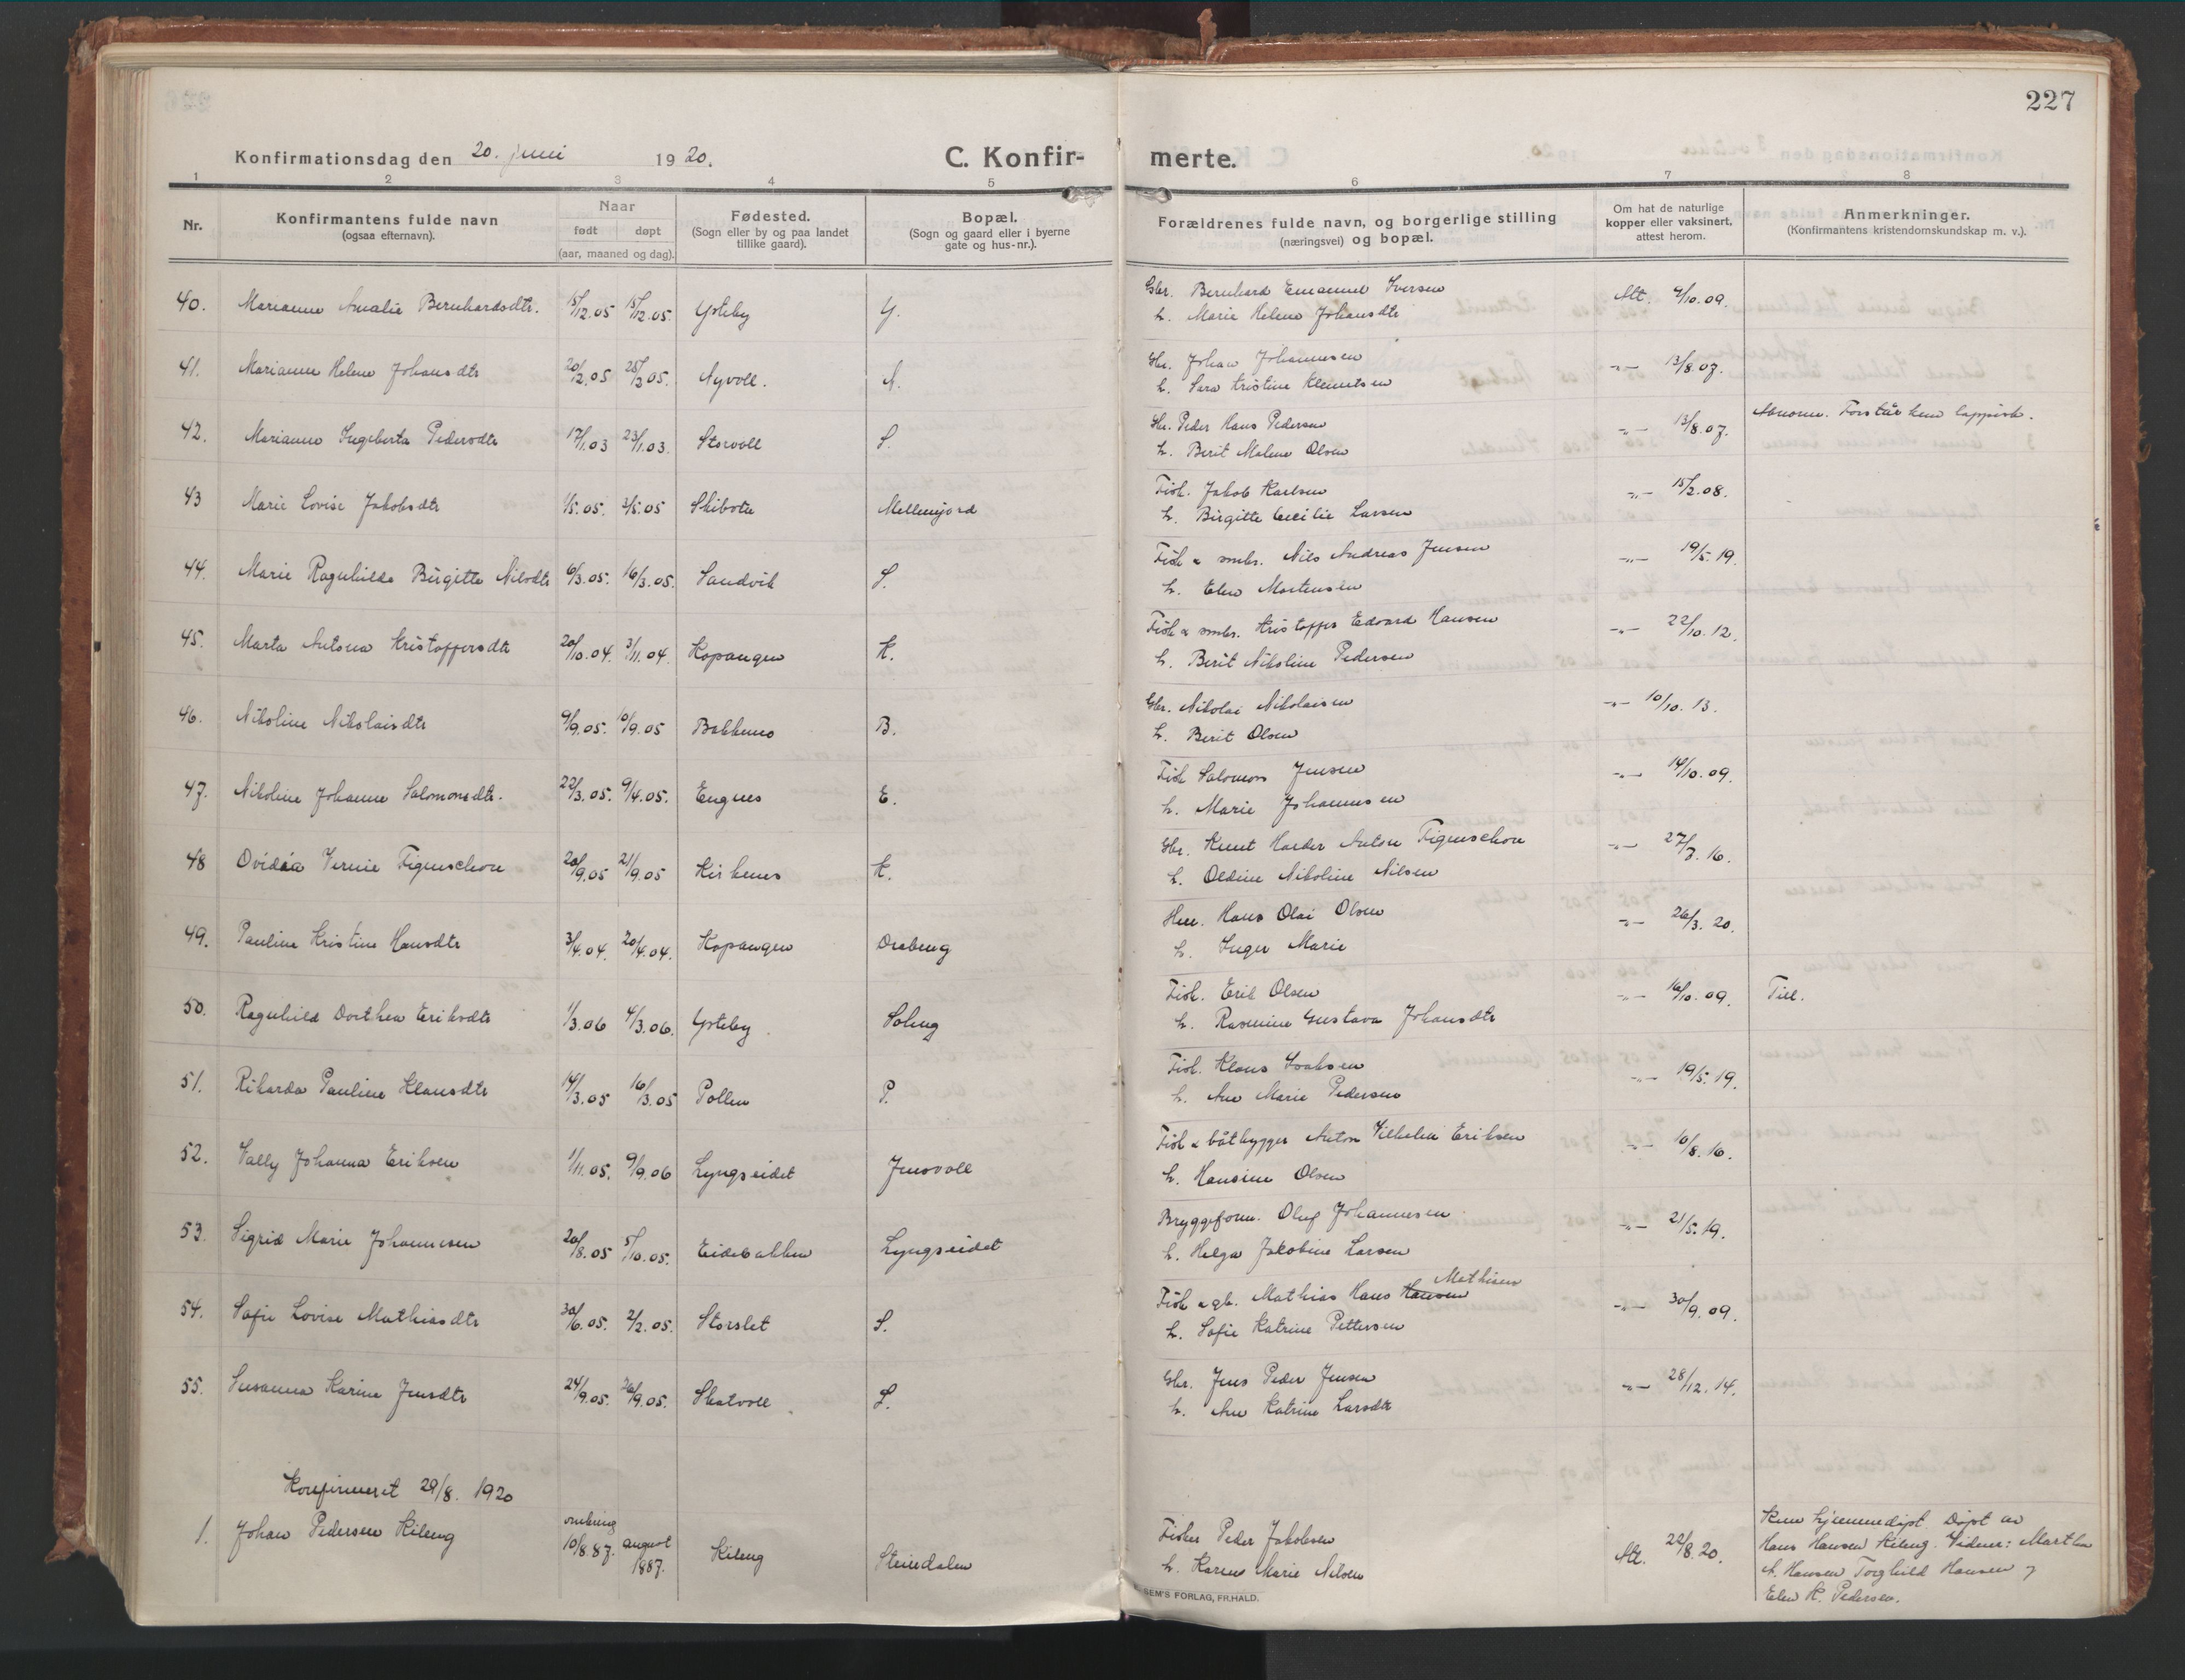 227
Konfirmationsdag den 20. juni 1920.
C. Konfir- merte.
1 2 3 4 5 6 7 8
Nr.
Konfirmantens fulde navn
(ogsaa efternavn).
Naar
født døpt
(aar, maaned og dag).
Fødested.
(Sogn eller by og paa landet
tillike gaard).
Bopæl.
(Sogn og gaard eller i byerne
gate og hus-nr.).
Forældrenes fulde navn, og borgerlige stilling
(næringsvei) og bopæl.
Om hat de naturlige
kopper eller vaksinert,
attest herom.
Anmerkninger.
(Konfirmantens kristendomskundskap m. v.).
40. Marianne Amalie Bernhardsdtr. 15/12.05 15/12.05. Ysteby Y. Gbr. Bernhard Emanuel Iversen Att. 4/10.09.
h. Marie Helene Johansdtr
41. Marianne Helene Johansdtr 20/2.05 25/3.05. Nyvoll. N. Gbr. Johan Johannesen -"- 13/8.07.
h. Sara Kristine Klemetsen
42. Marianne Ingeberta Pedersdtr 17/1.03 23/1.03. Storvoll S. Gbr. Peder Hans Pedersen -"- 13/8.07. Abnorm. Forstår kun lappisk.
h. Berit Malene Olsen
43 Marie Lovise Jakobsdtr 1/5.05. 3/5.05 Skibotn Mellemjord Fisk. Jakob Karlsen -"- 15/2.08.
h. Birgitte Cecilie Larsen
44. Marie Ragnhilda Birgitte Nilsdtr 6/3.05. 16/3.05. Sandvik S. Fisk & smbr. Nils Andreas Jensen -"- 19/5.19.
h. Elen Mortensen
45. Marta Antona Kristoffersdtr 20/10.04. 3/11.04. Kopangen K. Fisk & smbr. Kristoffer Edvard Hansen -"- 22/10.12.
h. Berit Nikoline Pedersen
46. Nikoline Nikolaisdtr 9/9.05. 10/9.05 Bakkenes B. Gbr. Nikolai Nikolaisen -"- 10/10.13.
h. Berit Olsen
47. Nikoline Johanne Salomonsdtr. 22/3.05. 9/4.05. Engnes E. Fisk Salomon Jensen -"- 14/10.09.
h. Marie Johannesen
48 Ovidia Vernie Figenschou 20/9.05 21/9.05 Kirkenes K. Gbr. Knut Harder Anton Figenschou -"- 27/7.16.
h. Oldine Nikoline Nilsen
49. Pauline Kristine Hansdtr 3/4.04. 20/4.04. Kopangen Oreberg Hans Olai Olsen -"- 26/3.20.
h. Inger Marie
50. Ragnhild Dorthea Eriksdtr 1/3.06 4/3.06. Ysteby Soleng Fisk. Erik Olsen -"- 16/10.09. Till.
h. Rasmine Gustava Johansdtr
51. Rikarda Pauline Klausdtr 14/3.05 16/3.05 Pollen P. Fisk. Klaus Isaksen -"- 19/5.19.
h. Ane Marie Pedersen
52. Vally Johanna Eriksen 1/11.05. 9/9.06 Lyngseidet Jensvoll Fisk & båtbygger Anton Vilhelm Eriksen -"- 10/8.16.
h. Hansine Olsen
53. Sigrid Marie Johannesen 20/8.05 5/10.05. Eidebakken Lyngseidet Bryggeform. Oluf Johannesen -"- 21/5.19.
h. Helga Jakobine Larsen
54. Sofie Lovise Mathiasdtr 30/6.05. 2/2.05. Storslet S. Fisk & gb. Mathias Hans Hansen Mathisen -"- 30/9.09.
h. Sofie Katrine Pettersen
55. Susanna Karine Jensdtr 24/9.05. 26/9.05. Skatvoll S. Gbr. Jens Peder Jensen -"- 28/12.14.
h. Ane Katrine Larsdtr
Konfirmeret 29/8. 1920
1. Johan Pedersen Kileng omkring 10/8 87. august 1887. Kileng Steindalen Fisker Peder Jakobsen Att. 22/8.20.
h. Karen Marie Nilsen
Kun hjemmedøpt. Døpt av
Hans Hansen Kileng. Vidner: Marthin
A. Hansen Torghild Hansen og
Elen K. Pedersen.
SEM'S FORLAG, FR.HALD.